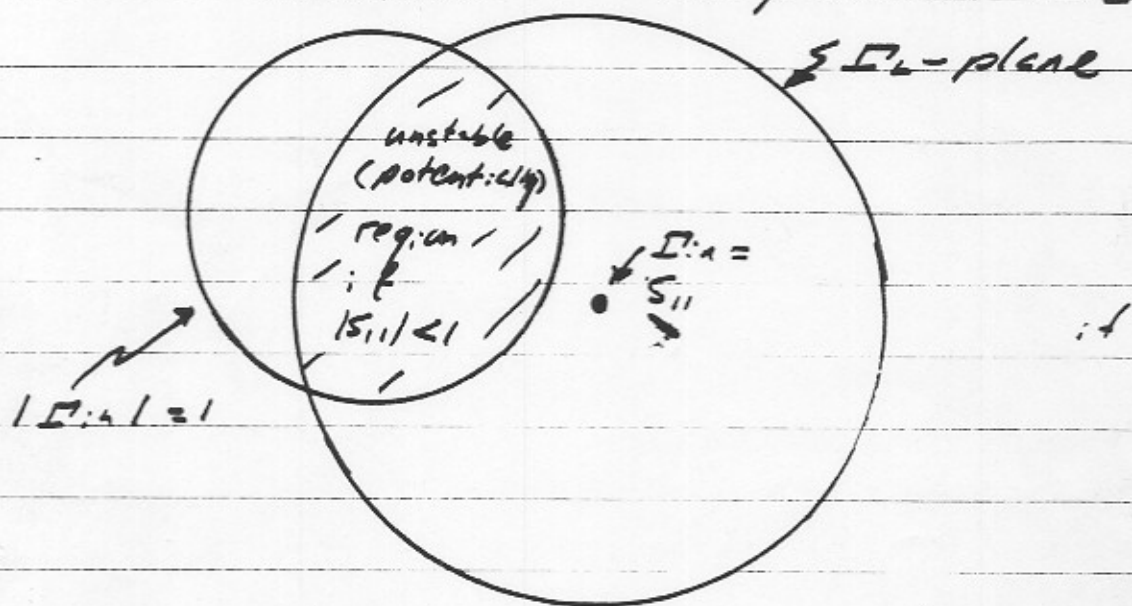 Γ_L-plane
unstable
(potentially)
region
if
|S₁₁| < 1
Γin =
S₁₁
if
|Γin| = 1